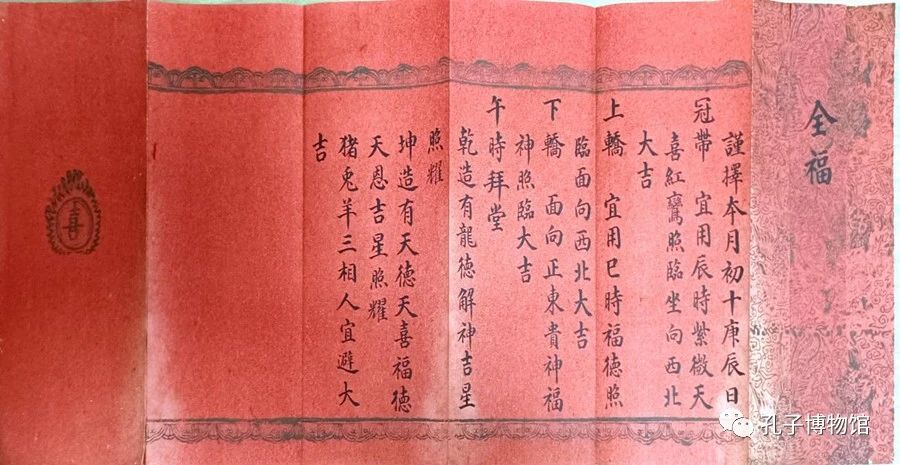 全福
謹擇本月初十庚辰日
冠帶 宜用辰時紫微天
喜紅鸞照臨坐向西北
大吉
上轎 宜用巳時福德照
臨面向西北大吉
下轎 面向正東貴神福
神照臨大吉
午時拜堂
乾造有龍德解神吉星
照耀
坤造有天德天喜福德
天恩吉星照耀
猪兎羊三相人宜避大
吉
喜
孔子博物馆